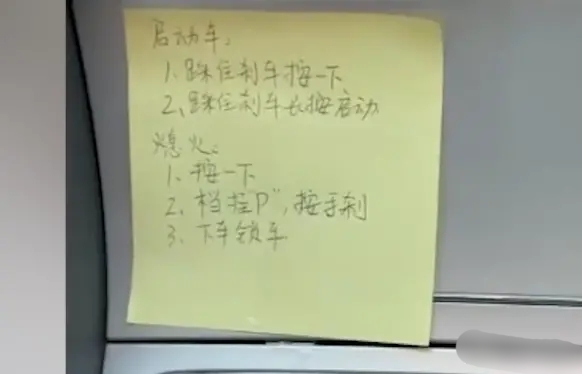 启动车:
1. 踩住刹车按一下
2、踩住刹车长按启动
熄火:
1. 按一下
2. 档挂"P", 按手刹
3. 下车锁车